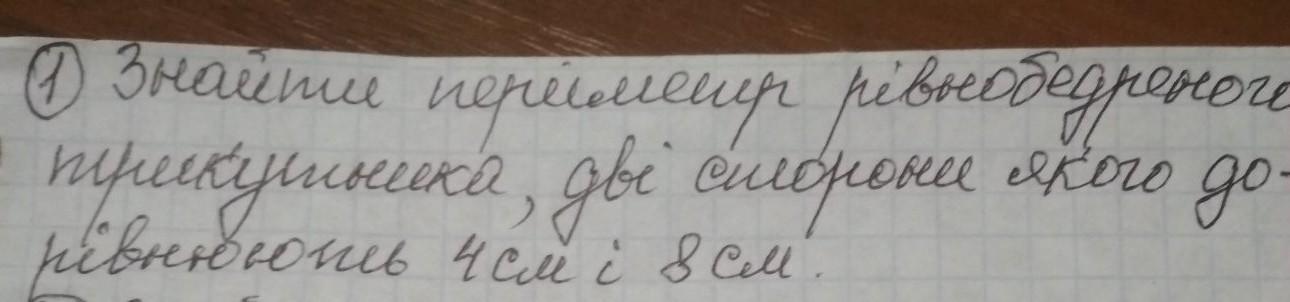 ① Знайти периметр рівнобедреного
трикутника, дві сторони якого до-
рівнюють 4 см і 8 см.